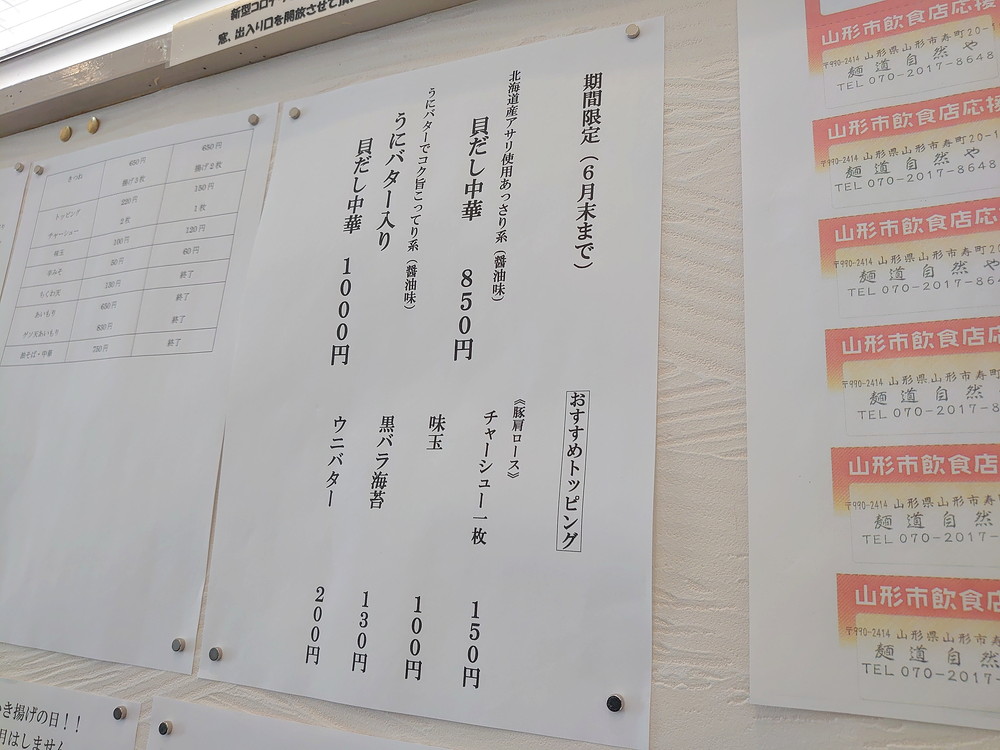 新型コロナ
窓、出入り口を開放させて頂
期間限定（６月末まで）
北海道産アサリ使用あっさり系（醤油味）
貝だし中華　８５０円
うにバターでコク旨こってり系（醤油味）
うにバター入り
貝だし中華　１０００円
おすすめトッピング
《豚肩ロース》
チャーシュー一枚　１５０円
味玉　１００円
黒バラ海苔　１３０円
ウニバター　２００円
きつね　650円　650円
揚げ3枚　揚げ2枚
トッピング　220円　150円
チャーシュー　2枚　1枚
味玉　100円　120円
辛みそ　50円　60円
ちくわ天　130円　終了
あいもり　650円　終了
ゲソ天あいもり　850円　終了
鶏そば・中華　750円　終了
き揚げの日！！
月はしません
山形市飲食店応援
〒990-2414 山形県山形市寿町20-1
麺道自然や
TEL 070-2017-8648
山形市飲食店応援
〒990-2414 山形県山形市寿町20-1
麺道自然や
TEL 070-2017-8648
山形市飲食店応
〒990-2414 山形県山形市寿町20
麺道自然や
TEL 070-2017-864
山形市飲食店応
〒990-2414 山形県山形市寿町
麺道自然
TEL 070-2017-8
山形市飲食店
〒990-2414 山形県山形市寿
麺道自然
TEL 070-2017-
山形市飲食店
〒990-2414 山形県山形市寿
麺道自然
TEL 070-2017-